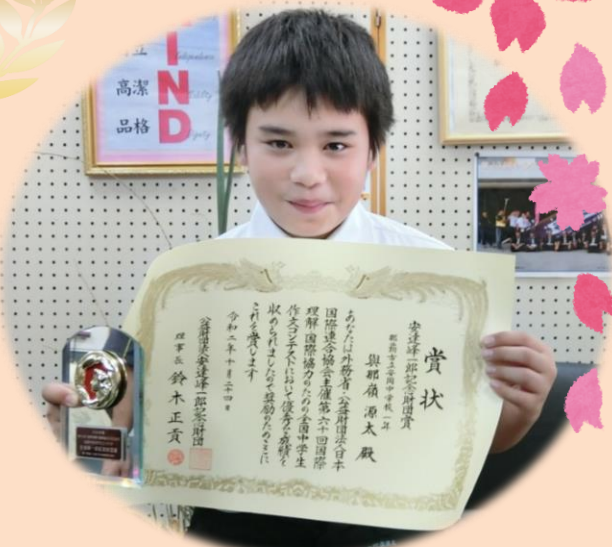 IND
高潔
品格
賞状
安達峰一郎記念財団賞
與那嶺 源太 殿
あなたは外務省・公益財団法人日本
国際連合協会主催第六十回国際
理解・国際協力のための全国中学生
作文コンテストにおいて優秀な成績を
収められましたので奨励のためここに
これを賞します
令和二年十月二十四日
公益財団法人安達峰一郎記念財団
理事長 鈴木正貢